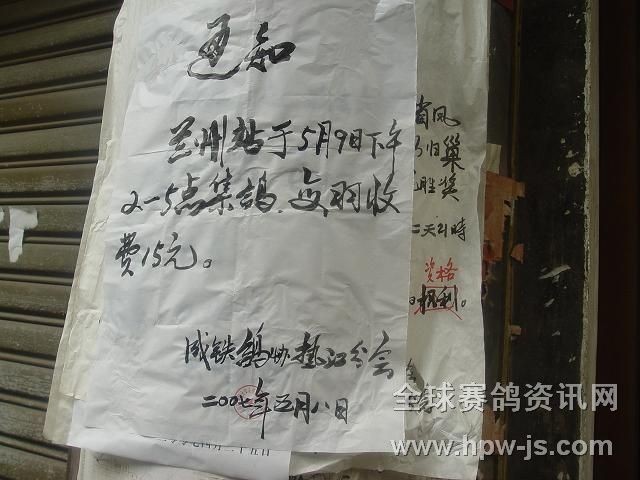 通知
兰州站于5月9日下午
2-5点集鸽.每羽收
费15元。
成铁鸽协垫江分会
二00七年五月八日
凤
归巢
胜奖
二天21時
资格
权利。
全球赛鸽资讯网
www.hpw-js.com